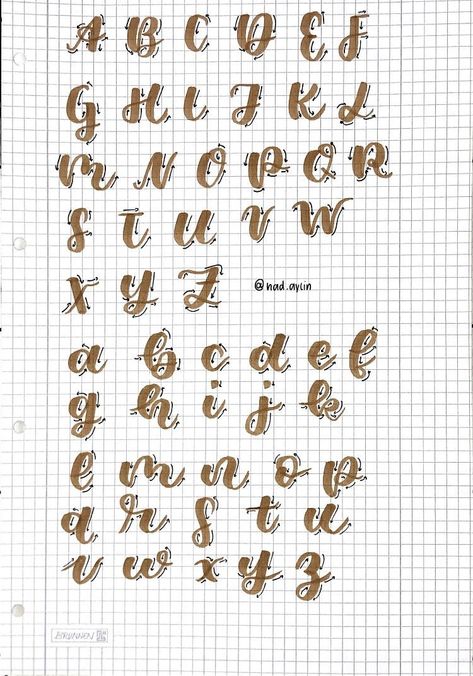 A B C D E F
G H I J K L
M N O P Q R
S T U V W
X Y Z @had.aylin
a b c d e f
g h i j k
l m n o p
q r s t u
v w x y z
BRUNNEN